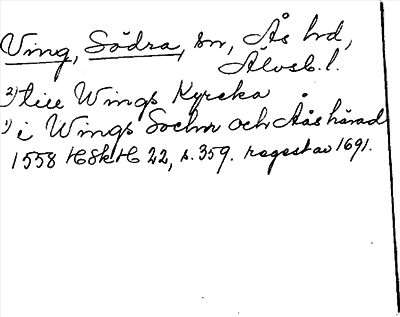 Ving, Södra, sn, Ås hd,
Älvsb. l.
2) till Wings Kyrcka
1) i Wings Sochn och Åås härad
1558 HSkH 22, s. 359. regest av 1691.